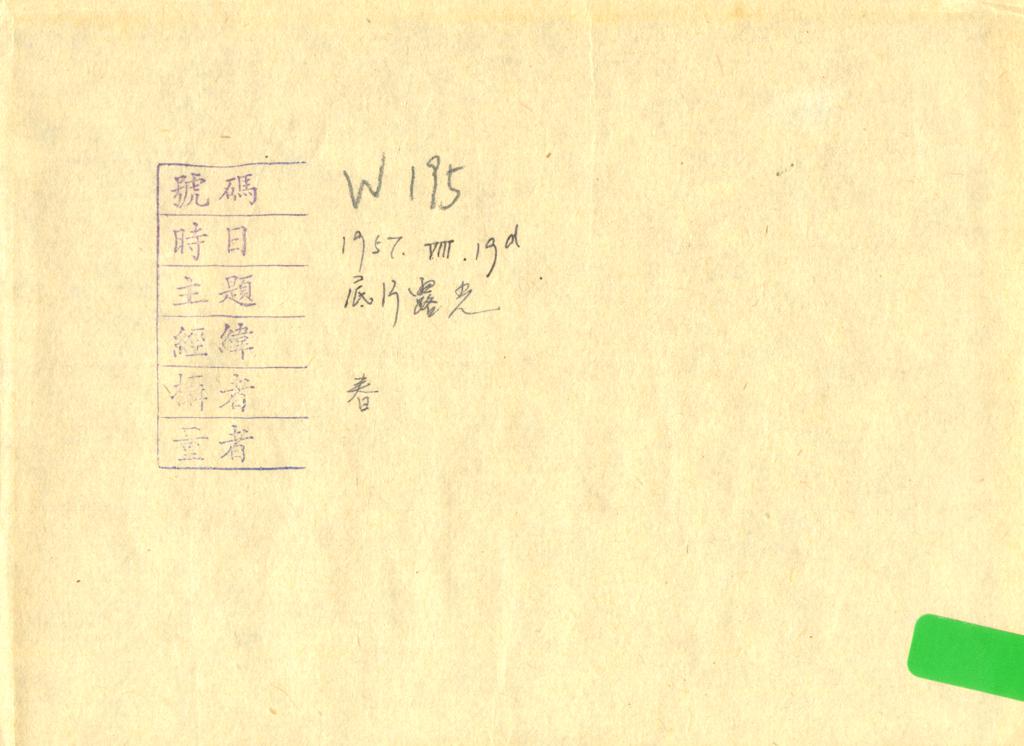 號碼 W195
時日 1957. VIII. 19d
主題 底片露光
經緯
攝者 春
量者